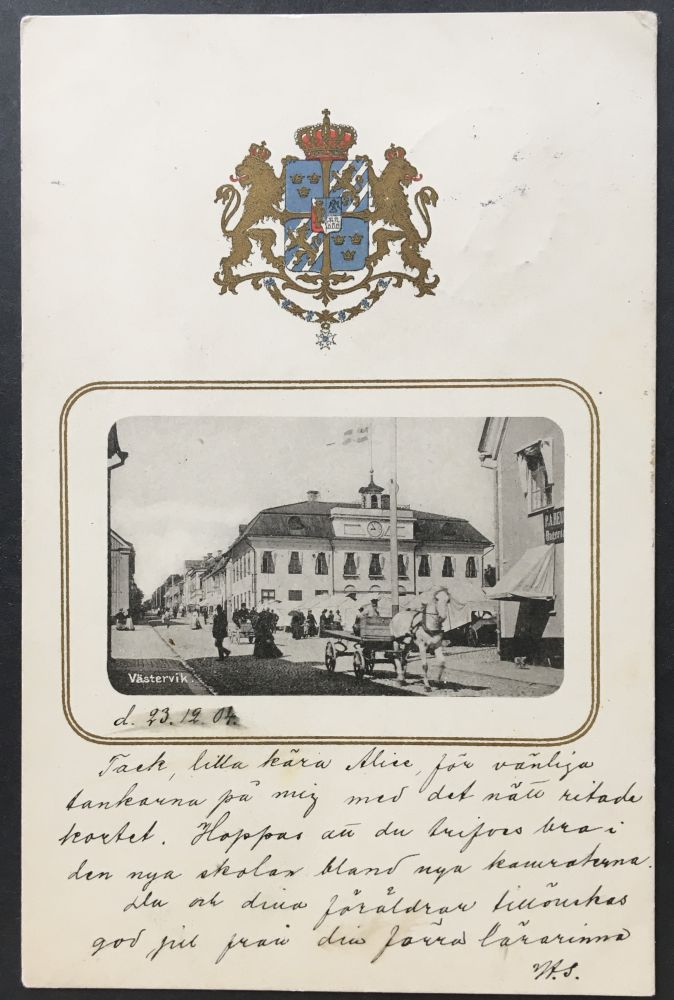 P.A.BE
Västervik.
d. 23.12.04.
Tack, lilla kära Alice, för vänliga
tankarna på mig med det nätt ritade
kortet. Hoppas att du trifves bra i
den nya skolan bland nya kamraterna.
Du och dina föräldrar tillönskas
god jul från din förra lärarinna
H.S.